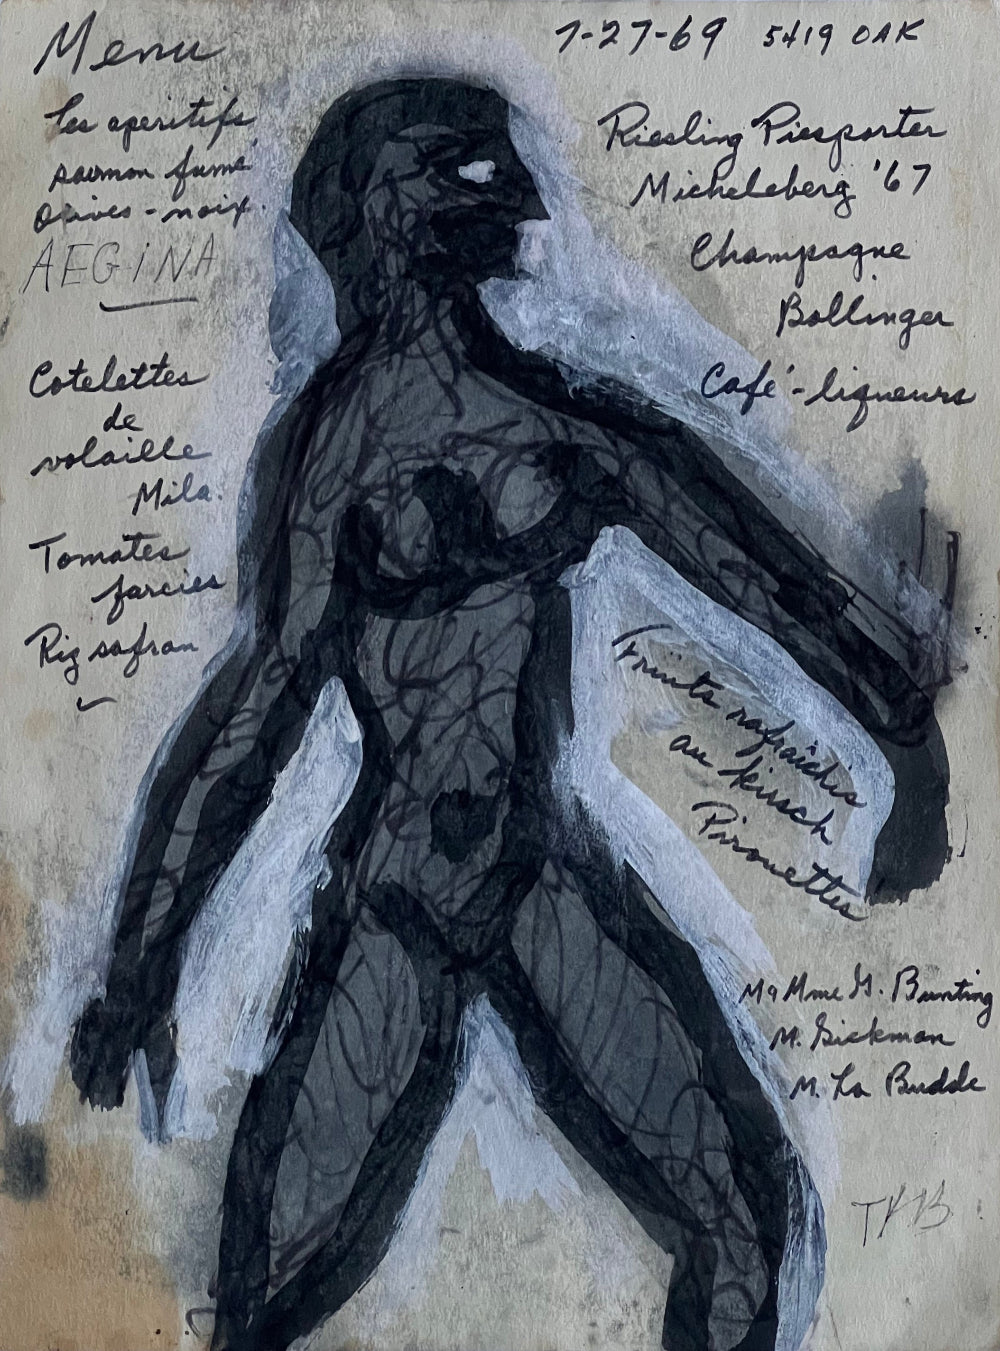 Menu
7-27-69 5419 OAK
Les aperitifs
saumon fumé
olives - noix.
AEGINA
Cotelettes
de
volaille
Mila.
Tomates
farcies
Riz safran
Riesling Piesporter
Micheleberg '67
Champagne
Bollinger
Café - liqueurs
Fruits rafraîchis
au kirsch
Pirouettes
M9 Mme G. Bunting
M. Sickman
M. La Budde